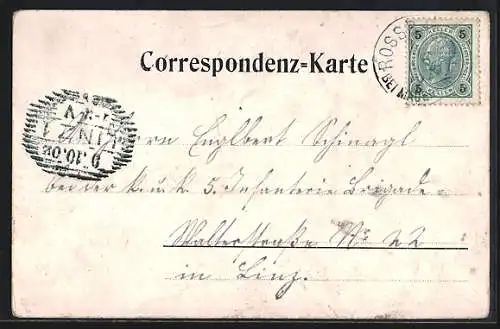 Correspondenz-Karte
5 5
ROSS
BEI M
5 5
LINZ 1
9.10.02
Herrn Englbert Schinagl
bei der k. u. k. 5. Infanterie Brigade
Walterstraße No 22
in Linz.